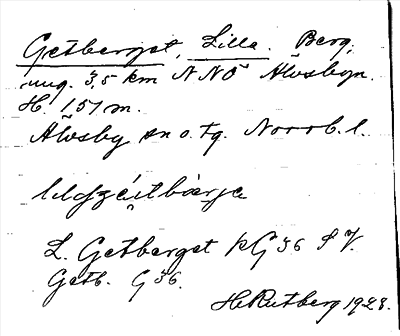 Getberget, Lilla. Berg,
ung. 3,5 km NNO Älvsbyn.
H. 151 m.
Älvsby sn o. tg. Norrb. l.
L. Getberget kG 36 S V.
Getb. G 36.
H Rutberg 1928.